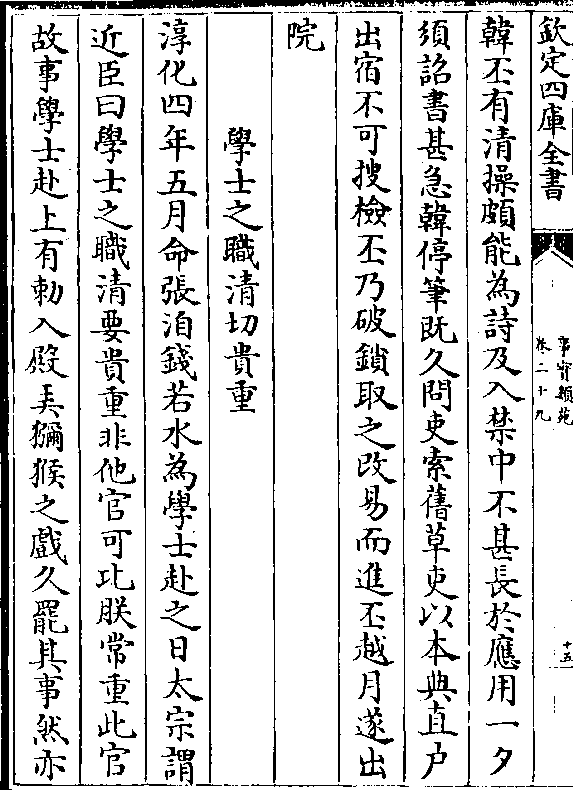 欽定四庫全書
事實類苑
卷二十九
十五
韓丕有清操頗能為詩及入禁中不甚長於應用一夕
須詔書甚急韓停筆既久問吏索舊草吏以本典直戶
出宿不可搜檢丕乃破鎖取之改易而進丕越月遂出
院
學士之職清切貴重
淳化四年五月命張洎錢若水為學士赴之日太宗謂
近臣曰學士之職清要貴重非他官可比朕常重此官
故事學士赴上有勅入殿弄獼猴之戲久罷其事然亦